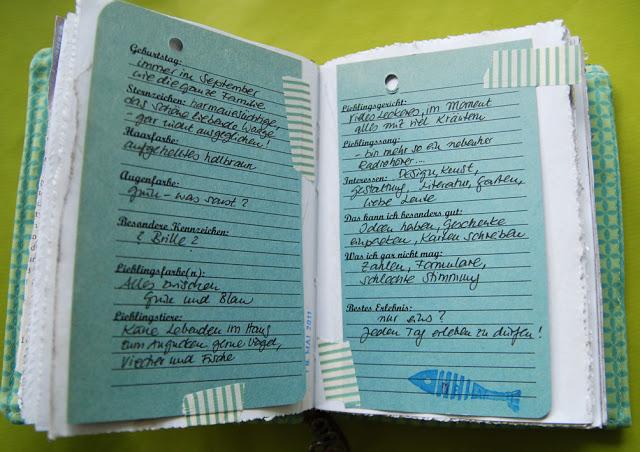 Geburtstag:
immer im September
wie die ganze Familie
Sternzeichen: harmoniesüchtige,
das schöne liebende Waage
- gar nicht ausgeglichen!
Haarfarbe:
aufgehelltes hellbraun
Augenfarbe:
grün - was sonst?
Besondere Kennzeichen:
? Brille ?
Lieblingsfarbe(n):
Alles zwischen
Grün und Blau
Lieblingstiere:
Keine Lebenden im Haus
zum Angucken gerne Vögel,
Viecher und Fische
MAI 2011
Lieblingsgericht:
vieles Leckeres, im Moment
alles mit viel Kräutern
Lieblingssong:
- bin mehr so ein nebenher
Radiohörer...
Interessen: Design, Kunst,
Gestaltung, Literatur, Garten,
liebe Leute
Das kann ich besonders gut:
Ideen haben, Geschenke
einpacken, Karten schreiben
Was ich gar nicht mag:
Zahlen, Formulare,
schlechte Stimmung
Bestes Erlebnis:
nur eins?
Jeden Tag erleben zu dürfen!